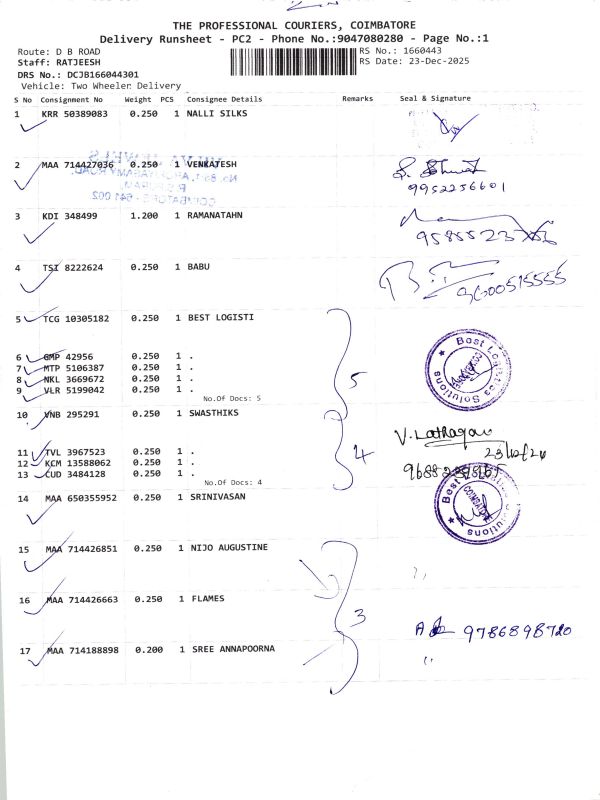 THE PROFESSIONAL COURIERS, COIMBATORE
Delivery Runsheet - PC2 - Phone No.:9047080280 - Page No.:1
Route: D B ROAD
RS No.: 1660443
Staff: RATJEESH
RS Date: 23-Dec-2025
DRS No.: DCJB166044301
Vehicle: Two Wheeler Delivery
S No Consignment No Weight PCS Consignee Details Remarks Seal & Signature
1 KRR 50389083 0.250 1 NALLI SILKS
2 MAA 714427036 0.250 1 VENKATESH
9952256601
3 KDI 348499 1.200 1 RAMANATAHN
4 TSI 8222624 0.250 1 BABU
9600515555
5 TCG 10305182 0.250 1 BEST LOGISTI
6 GMP 42956 0.250 1 .
7 MTP 5106387 0.250 1 .
8 NKL 3669672 0.250 1 .
9 VLR 5199042 0.250 1 .
No.Of Docs: 5
5
Best Logistics Solutions
10 VNB 295291 0.250 1 SWASTHIKS
11 TVL 3967523 0.250 1 .
12 KCM 13588062 0.250 1 .
13 CUD 3484128 0.250 1 .
No.Of Docs: 4
4
Best Logistics Solutions
14 MAA 650355952 0.250 1 SRINIVASAN
15 MAA 714426851 0.250 1 NIJO AUGUSTINE
16 MAA 714426663 0.250 1 FLAMES
3
9786898720
17 MAA 714188898 0.200 1 SREE ANNAPOORNA